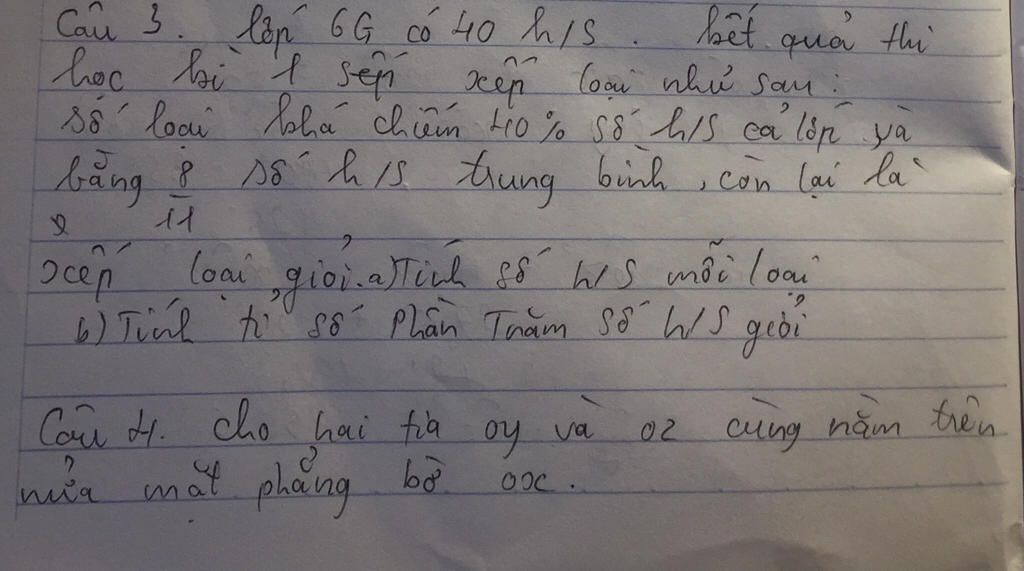 Câu 3. lớp 6G có 40 h/s. kết quả thi
học kì 1 sếp xếp loại như sau:
số loại khá chiếm 40% số h/s cả lớp và
bằng 8/11 số h/s trung bình, còn lại là
xếp loại giỏi. a) Tính số h/s mỗi loại
b) Tính tỉ số phần Trăm số h/s giỏi
Câu 4. cho hai tia oy và oz cùng nằm trên
nửa mặt phẳng bờ ox.